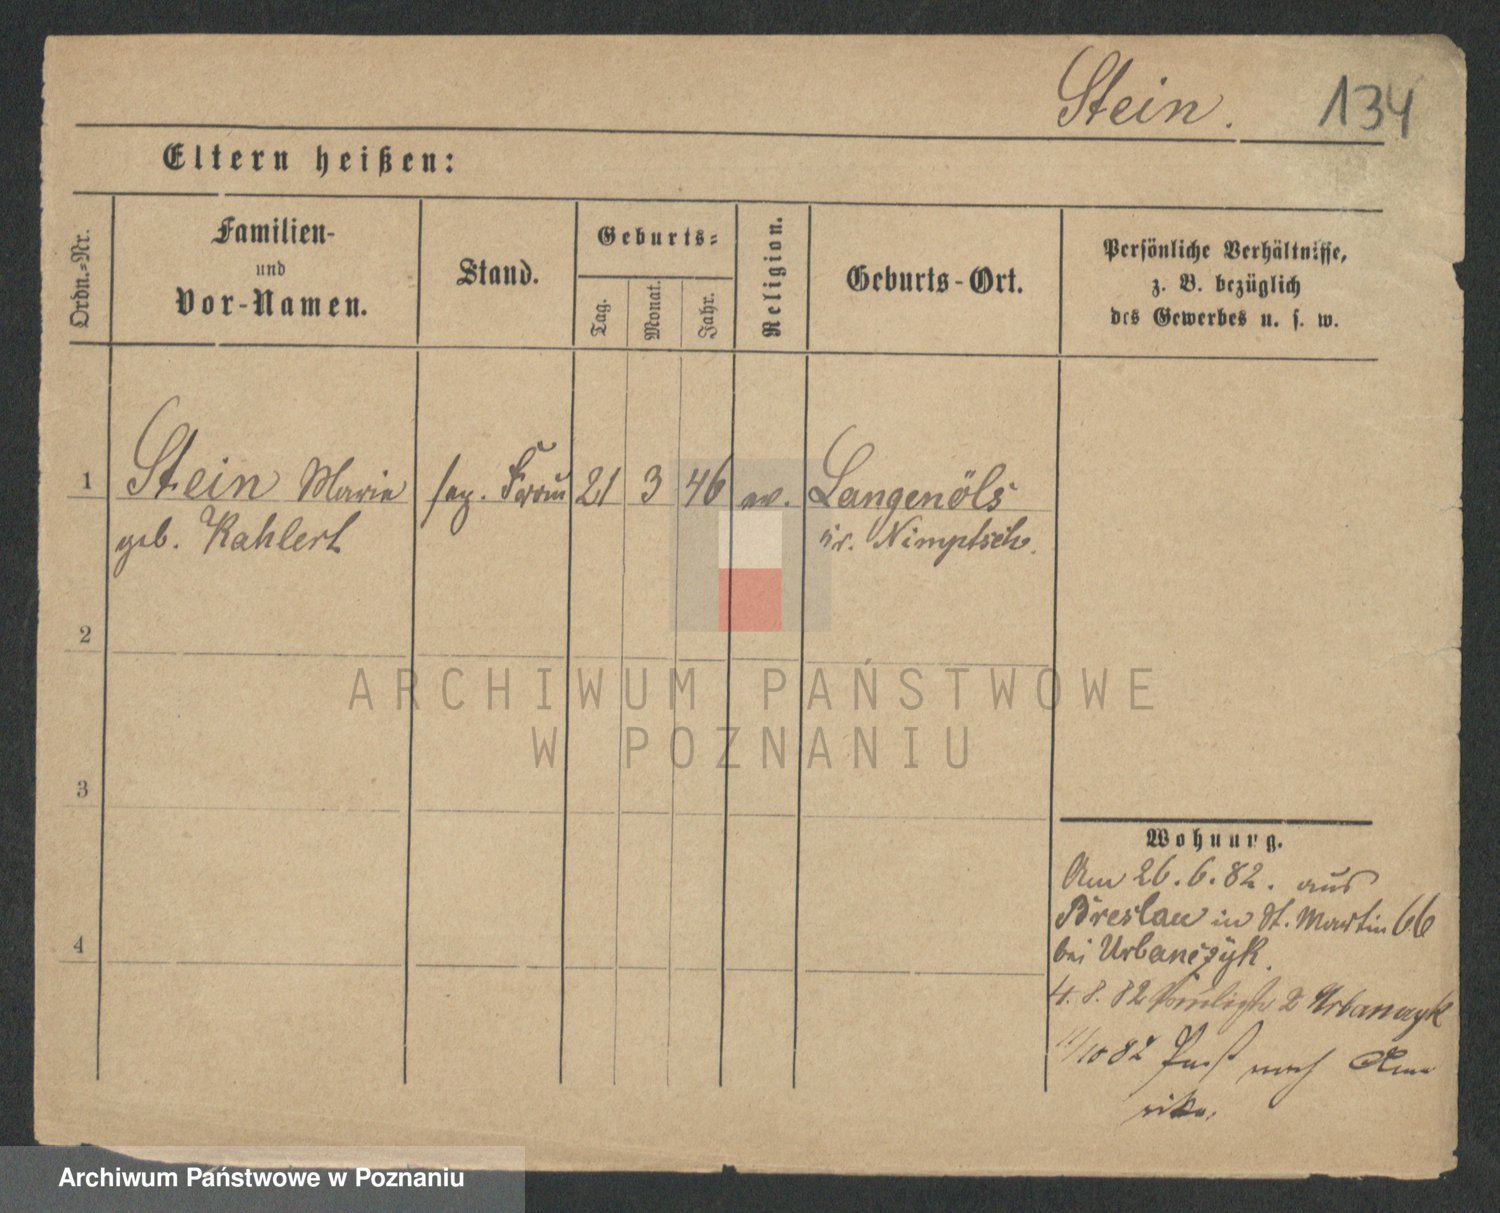 Stein. 134
Eltern heißen:
Ordn.=Nr.
Familien-
und
Vor-Namen.
Stand.
Geburts=
Tag.
Monat.
Jahr.
Religion.
Geburts-Ort.
Persönliche Verhältnisse,
z. B. bezüglich
des Gewerbes u. s. w.
1 Stein Marie 21 3 46 ev. Langenöls
geb. Kahlert Kr. Nimptsch.
2
3
4
Wohnung.
Am 26.6.82. aus
Breslau in St. Martin 66
bei Urbanczyk.
4.8.82 2 Urbanczyk
11/10 82 Paß nach Ame
rika.
ARCHIWUM PAŃSTWOWE
W POZNANIU
Archiwum Państwowe w Poznaniu